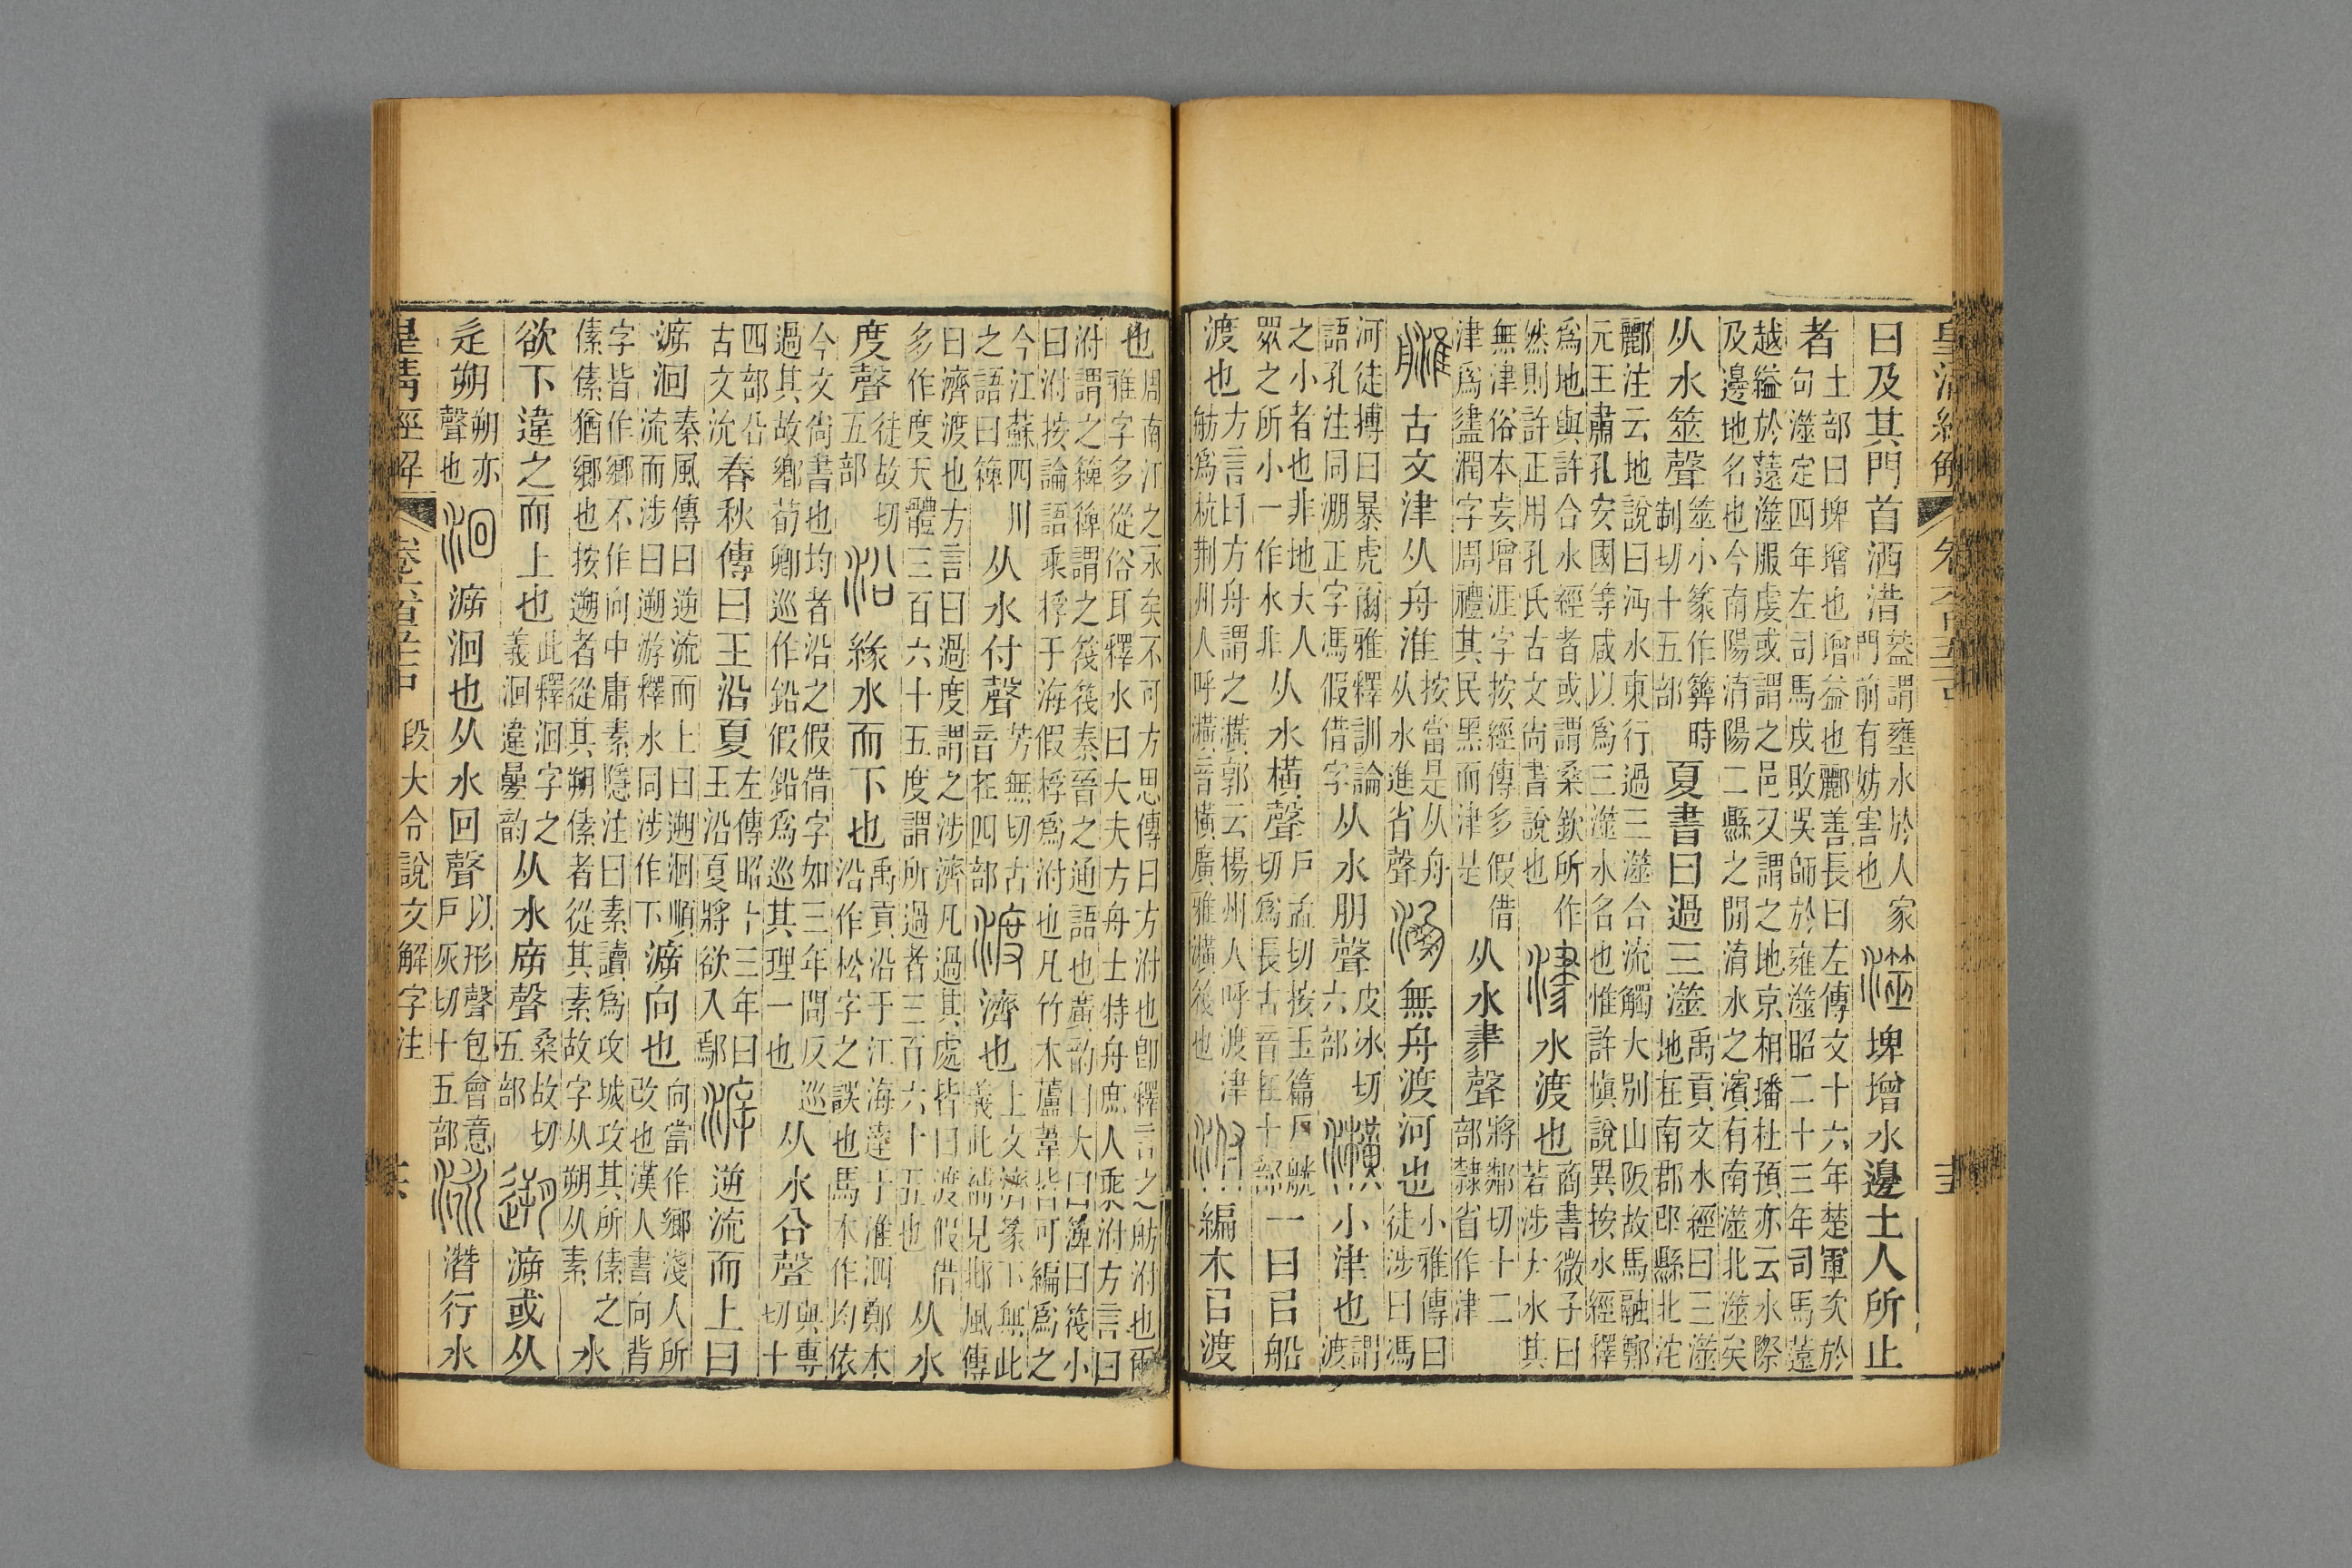 曰及其門首洒浩葢謂壅水於人家
門前有妨害也澨埤增水邊土人所止
者土部曰埤增也增益也酈善長曰左傳文十六年楚軍次於
句澨定四年左司馬戌敗吳師於雍澨昭二十三年司馬薳
越縊於薳澨服虔或謂之邑又謂之地京相璠杜預亦云水際
及邊地名也今南陽淯陽二縣之閒淯水之濱有南澨北澨矣
从水筮聲澨小篆作簭時
制切十五部夏書曰過三澨禹貢文水經曰三澨
地在南郡邔縣北沱
酈注云地說曰沔水東行過三澨合流觸大別山阪故馬融鄭
元王肅孔安國等咸以爲三澨水名也惟許愼說異按水經釋
爲地與許合水經者或謂桑欽所作
然則許正用孔氏古文尚書說也津水渡也商書微子曰
若涉大水其
無津俗本妄增涯字按經傳多假借
津爲𧗁潤字周禮其民黑而津是从水𦘔聲將鄰切十二
部隸省作津
古文津从舟淮按當是从舟
从水進省聲淜無舟渡河也小雅傳曰
徒涉曰馮
河徒搏曰暴虎爾雅釋訓論
語孔注同淜正字馮假借字从水朋聲皮冰切
六部㶇小津也謂
渡
之小者也非地大人
眾之所小一作水非从水橫聲戶孟切按玉篇戶觥
切爲長古音在十部一曰㠯船
渡也方言曰方舟謂之㶇郭云楊州人呼渡津
舫爲杭荆州人呼㶇音橫廣雅㶇筏也泭編木㠯渡
也周南江之永矣不可方思傳曰方泭也卽釋言之舫泭也爾
雅字多從俗耳釋水曰大夫方舟士特舟庶人乘泭方言曰
泭謂之䉬䉬謂之筏筏秦晉之通語也廣韵曰大曰䉬曰筏小
曰泭按論語乘桴于海假桴爲泭也凡竹木蘆葦皆可編爲之
今江蘇四川
之語曰䉬从水付聲芳無切古
音在四部渡濟也上文濟篆下無此
義此補見邶風傳
曰濟渡也方言曰過度謂之涉濟凡過其處皆曰渡假借
多作度天體三百六十五度謂所過者三百六十五也从水
度聲徒故切
五部沿緣水而下也禹貢沿于江海達于淮泗鄭本
沿作松字之誤也馬本作均依
今文尚書也均者沿之假借字如三年問反巡
過其故鄉荀卿巡作鉛假鉛爲巡其理一也从水㕣聲與專
切十
四部㳂
古文沇春秋傳曰王沿夏左傳昭十三年曰
王沿夏將欲入鄢㴑逆流而上曰
㴑洄秦風傳曰逆流而上曰遡洄順
流而涉曰遡游釋水同涉作下㴑向也向當作鄉淺人所
改也漢人書向背
字皆作鄉不作向中庸素隱注曰素讀爲攻城攻其所傃之
傃傃猶鄉也按遡者從其朔傃者從其素故字从朔从素水
欲下違之而上也此釋洄字之
義洄違曡韵从水㡿聲桑故切
五部遡㴑或从
辵朔朔亦
聲也洄㴑洄也从水回聲以形聲包會意
戶灰切十五部泳潛行水
皇清經解 段大令說文解字注